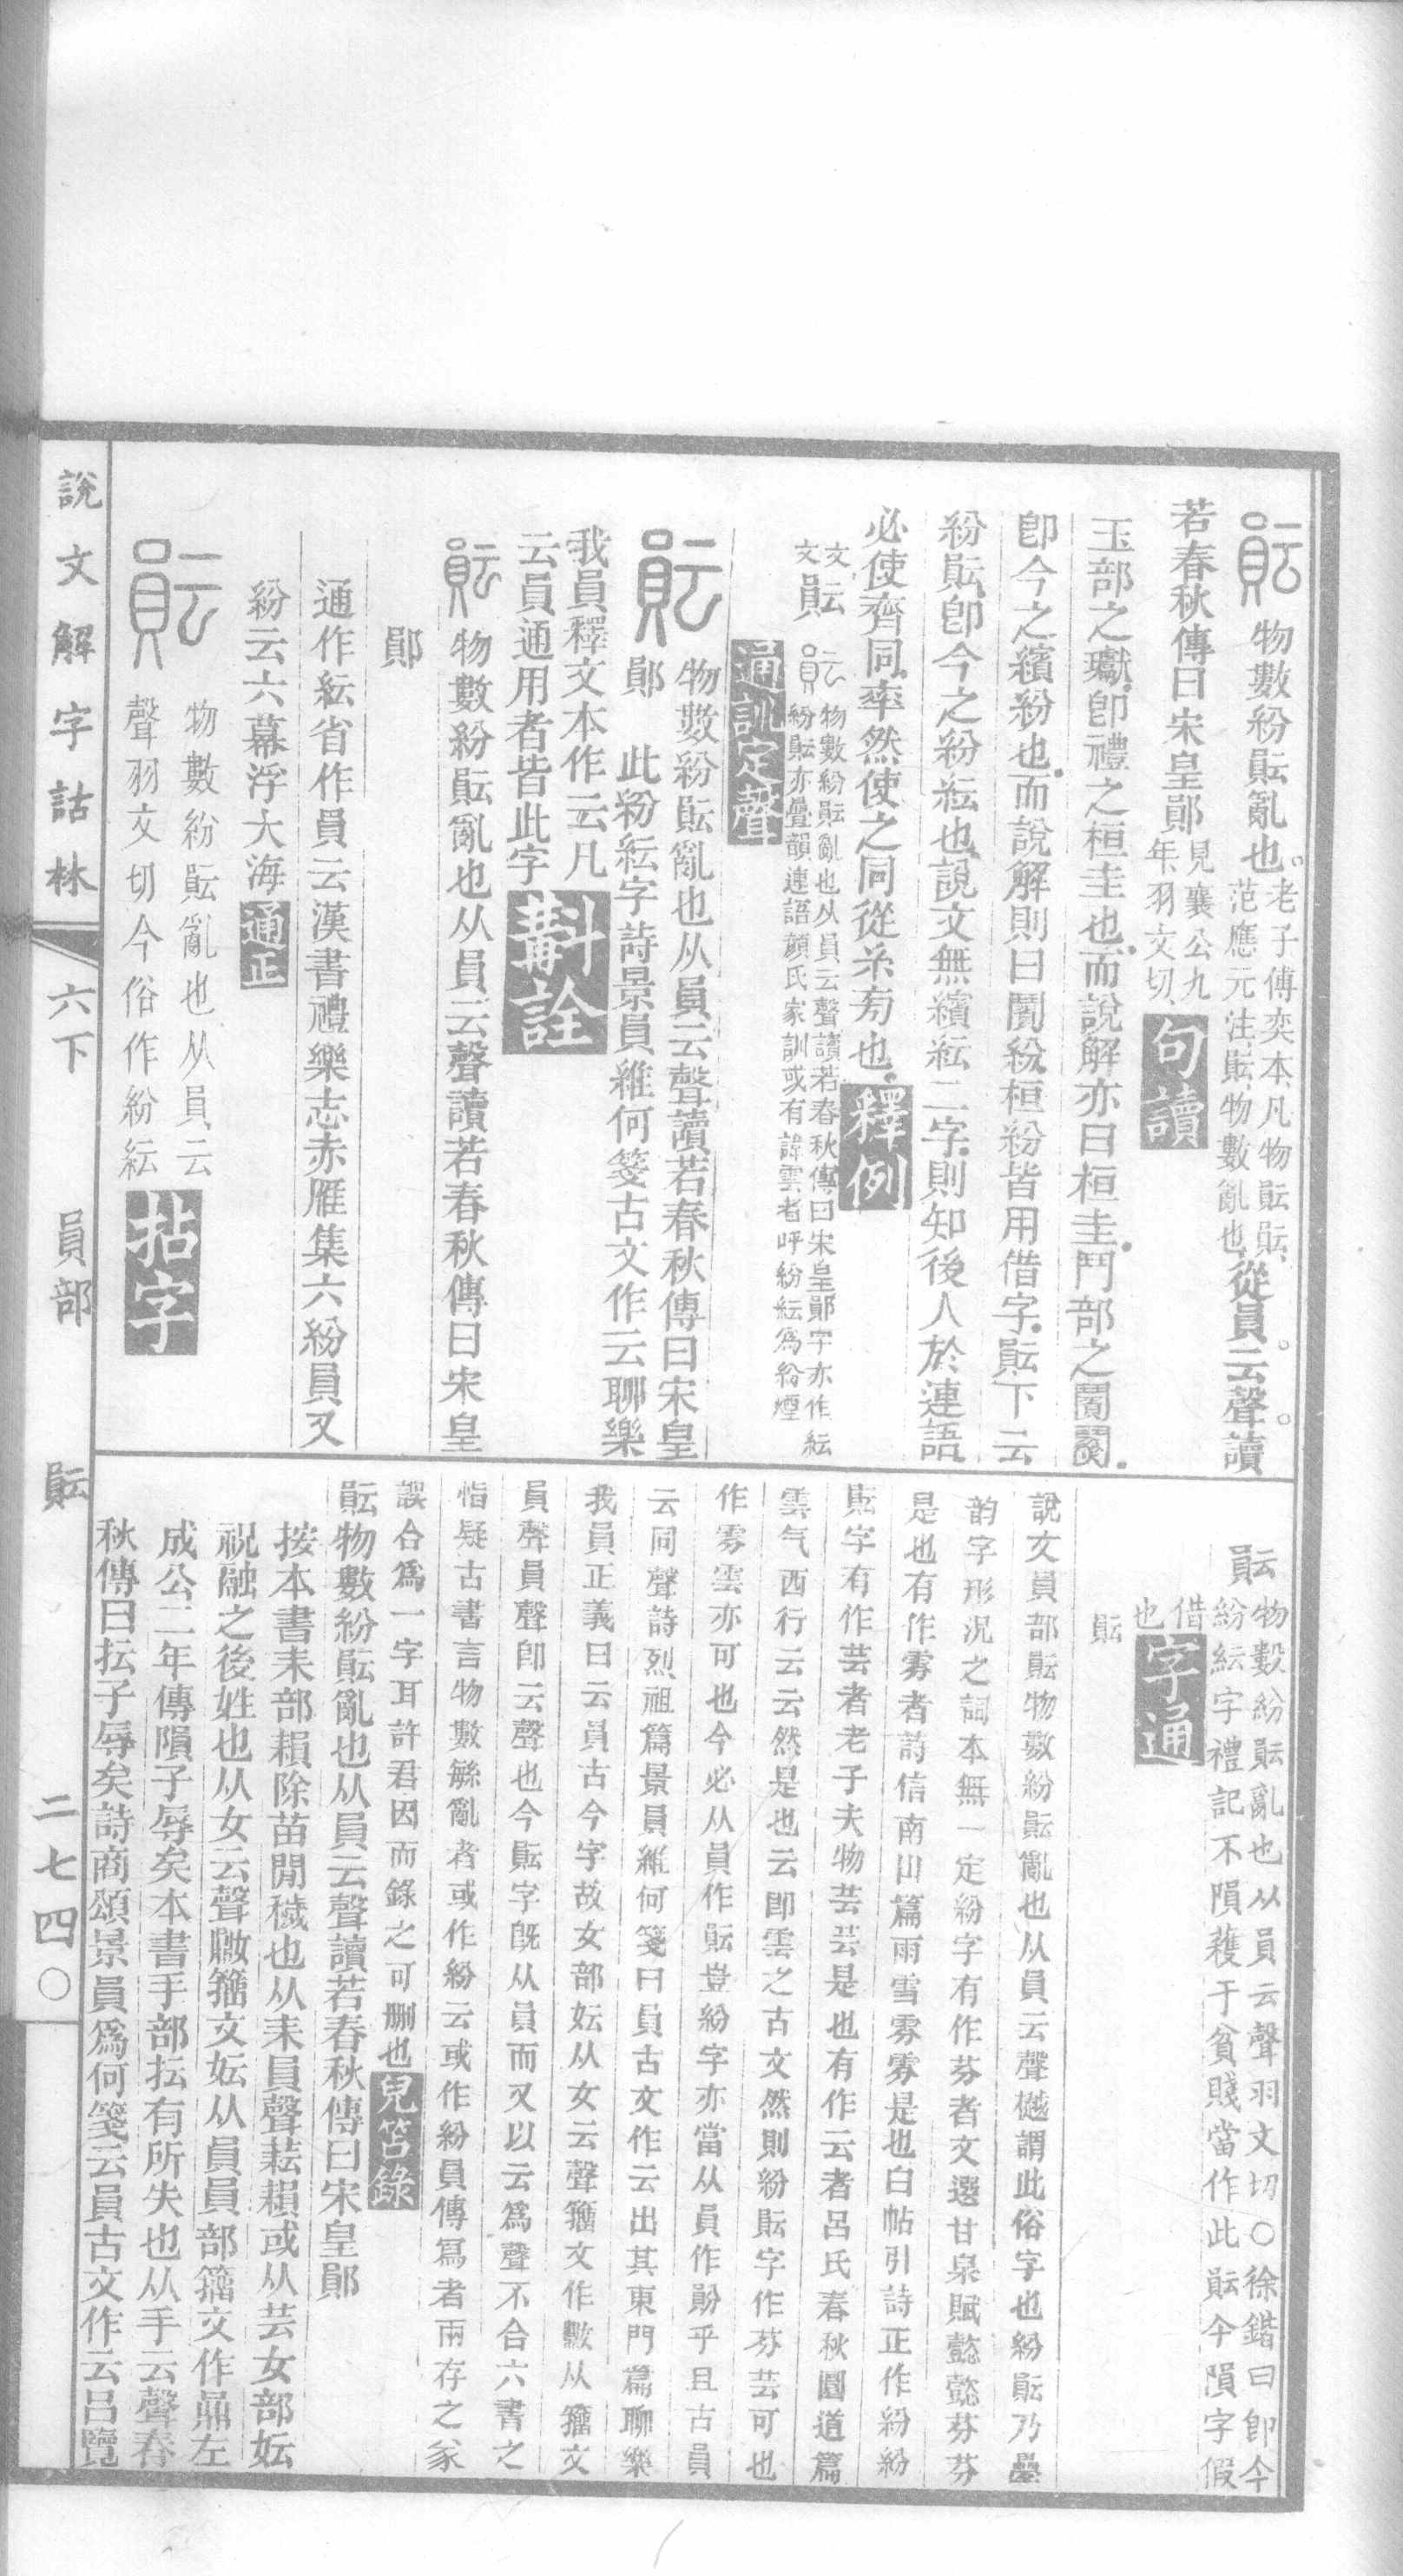 䪳物數紛䪳亂也老子傅奕本凡物䪳䪳范應元注䪳物數亂也從員云聲讀
若春秋傳曰宋皇鄖見襄公九年羽文切句讀
玉部之瓛卽禮之桓圭也而說解亦曰桓圭鬥部之鬮
卽今之繽紛也而說解則曰鬮紛桓紛皆用借字䪳下云
紛䪳卽今之紛紜也說文無繽紜二字則知後人於連語
必使齊同率然使之同從糸㫄也釋例
文䪳
文䪳物數紛䪳亂也从員云聲讀若春秋傳曰宋皇鄖字亦作紜
紛䪳亦疊韻連語顏氏家訓或有諱雲者呼紛紜爲紛煙
通訓定聲
䪳物數紛䪳亂也从員云聲讀若春秋傳曰宋皇
鄖此紛紜字詩景員維何箋古文作云聊樂
我員釋文本作云凡
云員通用者皆此字斠詮
䪳物數紛䪳亂也从員云聲讀若春秋傳曰宋皇
鄖
通作紜省作員云漢書禮樂志赤雁集六紛員又
紛云六幕浮大海通正
䪳物數紛䪳亂也从員云
聲羽文切今俗作紛紜拈字
䪳物數紛䪳亂也从員云聲羽文切〇徐鍇曰卽今
紛紜字禮記不隕穫于貧賤當作此䪳今隕字假
借也字通
䪳
說文員部䪳物數紛䪳亂也从員云聲樾謂此俗字也紛䪳乃疊
韵字形況之詞本無一定紛字有作芬者文選甘泉賦懿懿芬芬
是也有作雰者詩信南山篇雨雪雰雰是也白帖引詩正作紛紛
䪳字有作芸者老子夫物芸芸是也有作云者呂氏春秋圜道篇
雲气西行云云然是也云卽雲之古文然則紛䪳字作芬芸可也
作雰雲亦可也今必从員作䪳豈紛字亦當从員作乎且古員
云同聲詩烈祖篇景員維何箋曰員古文作云出其東門篇聊樂
我員正義曰云員古今字故女部妘从女云聲籒文作䫟从籒文
員聲員聲卽云聲也今䪳字旣从員而又以云爲聲不合六書之
恉疑古書言物數緐亂者或作紛云或作紛員傳寫者兩存之㒸
誤合爲一字耳許君因而錄之可刪也兒笘錄
䪳物數紛䪳亂也从員云聲讀若春秋傳曰宋皇鄖
按本書耒部䎱除苗閒穢也从耒員聲䎱或从芸女部妘
祝融之後姓也从女云聲籒文妘从員員部籒文作鼎左
成公二年傳隕子辱矣本書手部抎有所失也从手云聲春
秋傳曰抎子辱矣詩商頌景員爲何箋云員古文作云呂覽
說文解字詁林 六下 員部 䪳 二七四〇